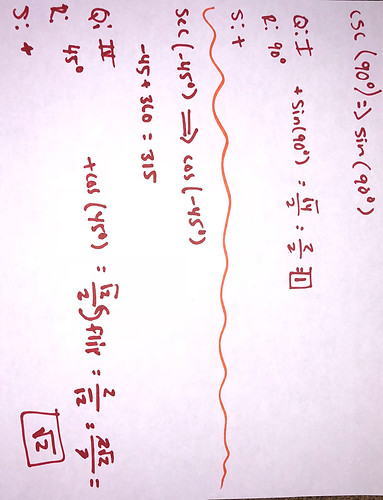 csc (90°) ⇒ sin (90°)
Q: I + sin(90°) = √4/2 = 2/2 = 1
R: 90°
S: +
sec(-45°) ⇒ cos(-45°)
-45 + 360 = 315
Q: IV
R: 45° + cos(45°) = √2/2 flip = 2/√2 = 2√2/2 = √2
S: +